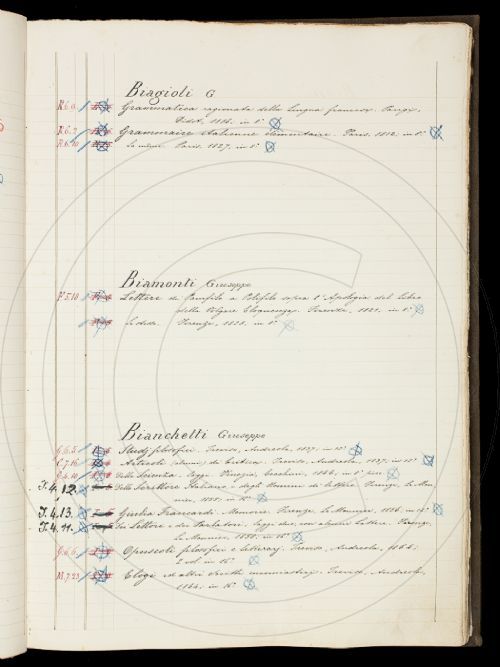 Biagioli G
R.6.9 Grammatica ragionata della lingua francese. Parigi,
Didot, 1816. in 8°
R.6.9 Grammaire italienne élémentaire. Paris, 1812, in 8°
R.6.10 La même Paris. 1827. in 8°
Biamonti Giuseppe
F.5.10 Lettere di Panfilo a Polifilo sopra l'Apologia del libro
della Volgare Eloquenza. Firenze, 1821, in 8°
Firenze, 1821. in 8°
Bianchetti Giuseppe
G.6.5 Studj filosofici. Treviso, Andreola, 1837. in 16°
C.7.16 Articoli (alcuni) di Critica. Treviso, Andreola, 1837. in 16°
Della Scienza. Saggi Venezia, Cecchini, 1846, in 8°
I.4.12. Dello Scrittore Italiano e degli Uomini di lettere Firenze, Le Mon
nier, 1855. in 16°
I.4.13. Giulia Francardi. Memorie. Firenze Le Monnier, 1856. in 16°
I.4.11. Dei Lettori e dei Parlatori, Saggi due, con alcune Lettere. Firenze,
Le Monnier, 1858. in 16°
G.6.6 Opuscoli filosofici e letterarj. Treviso, Andreola,
2 vol. in 16°
M.7.23 Elogi ed altri Treviso, Andreola,
in 16°